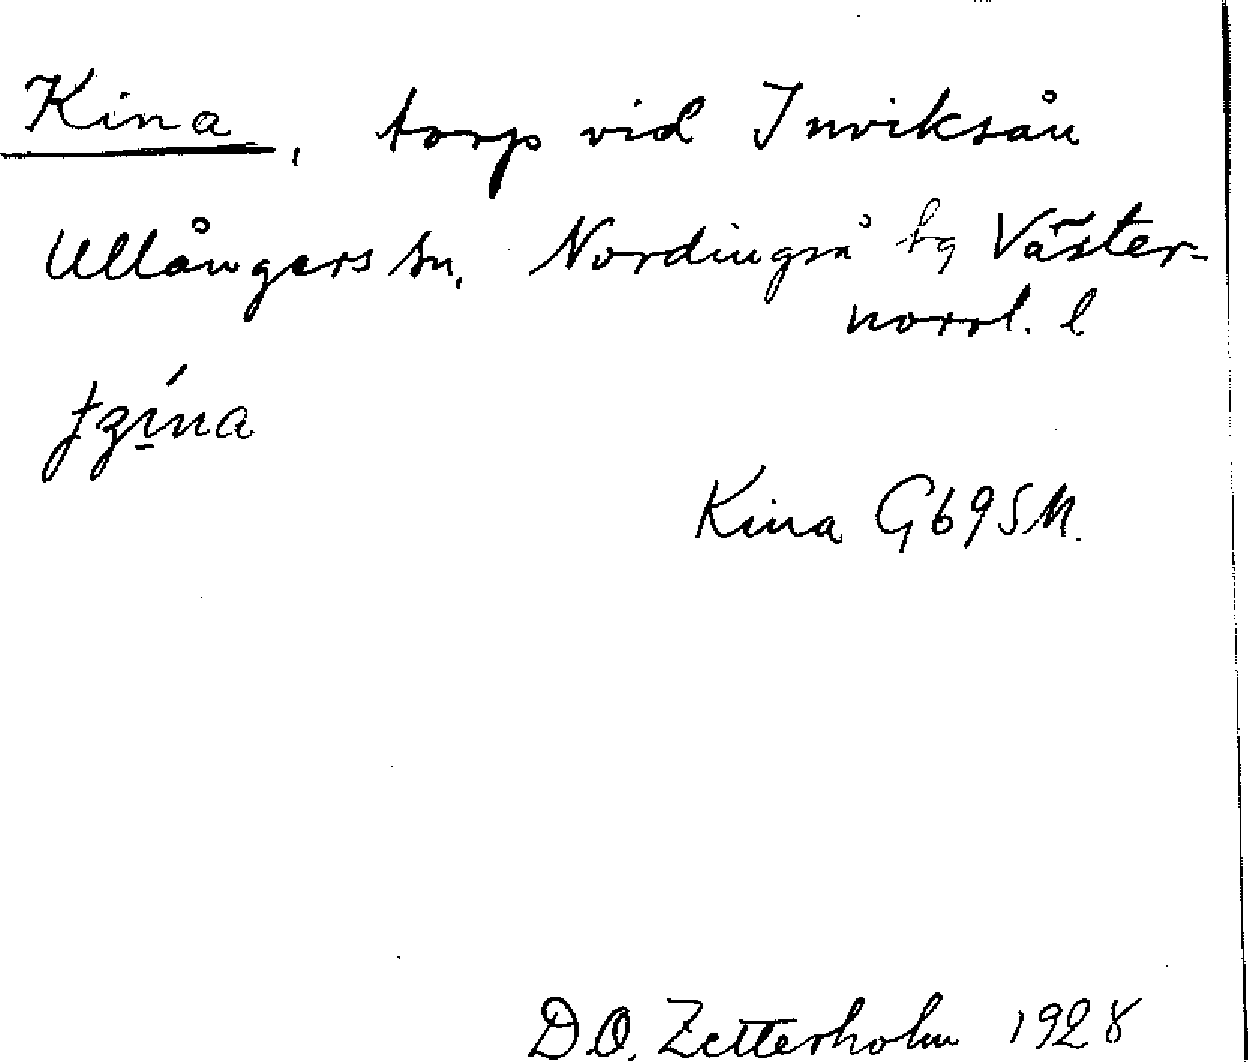 Kina, torp vid Inviksån
Ullångers sn, Nordingrå tg Väster-
norrl. l
Kina G695M.
D.O. Zetterholm 1928